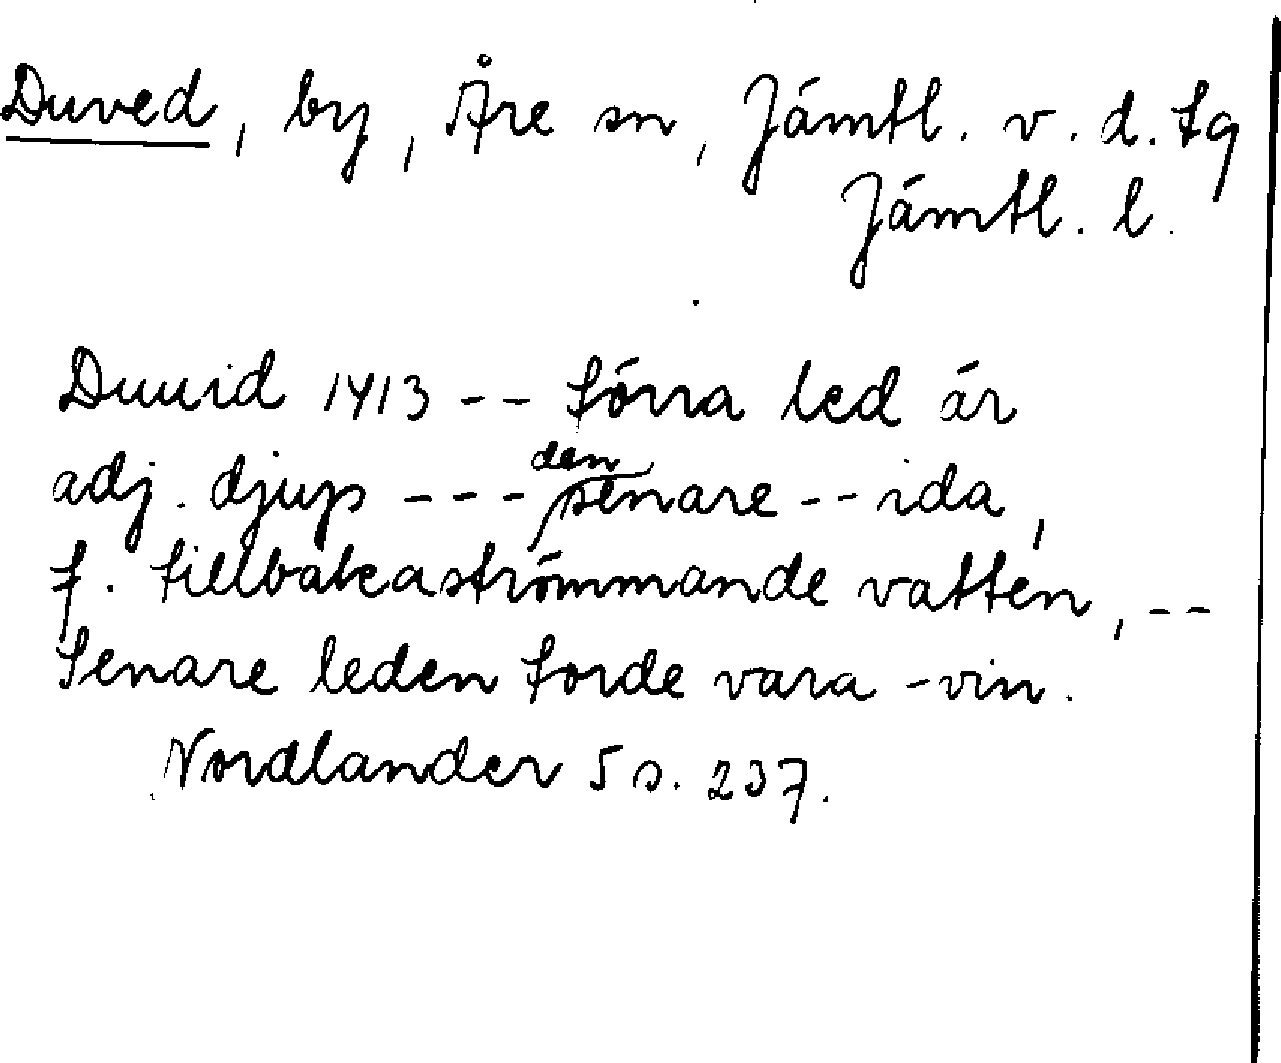 Duved, by, Åre sn, Jämtl. v. d. tg
Jämtl. l.
Duuid 1413 -- förra led är
adj. djup --- den senare -- ida,
f. tillbakaströmmande vatten, --
Senare leden torde vara -vin.
Nordlander 5 s. 237.